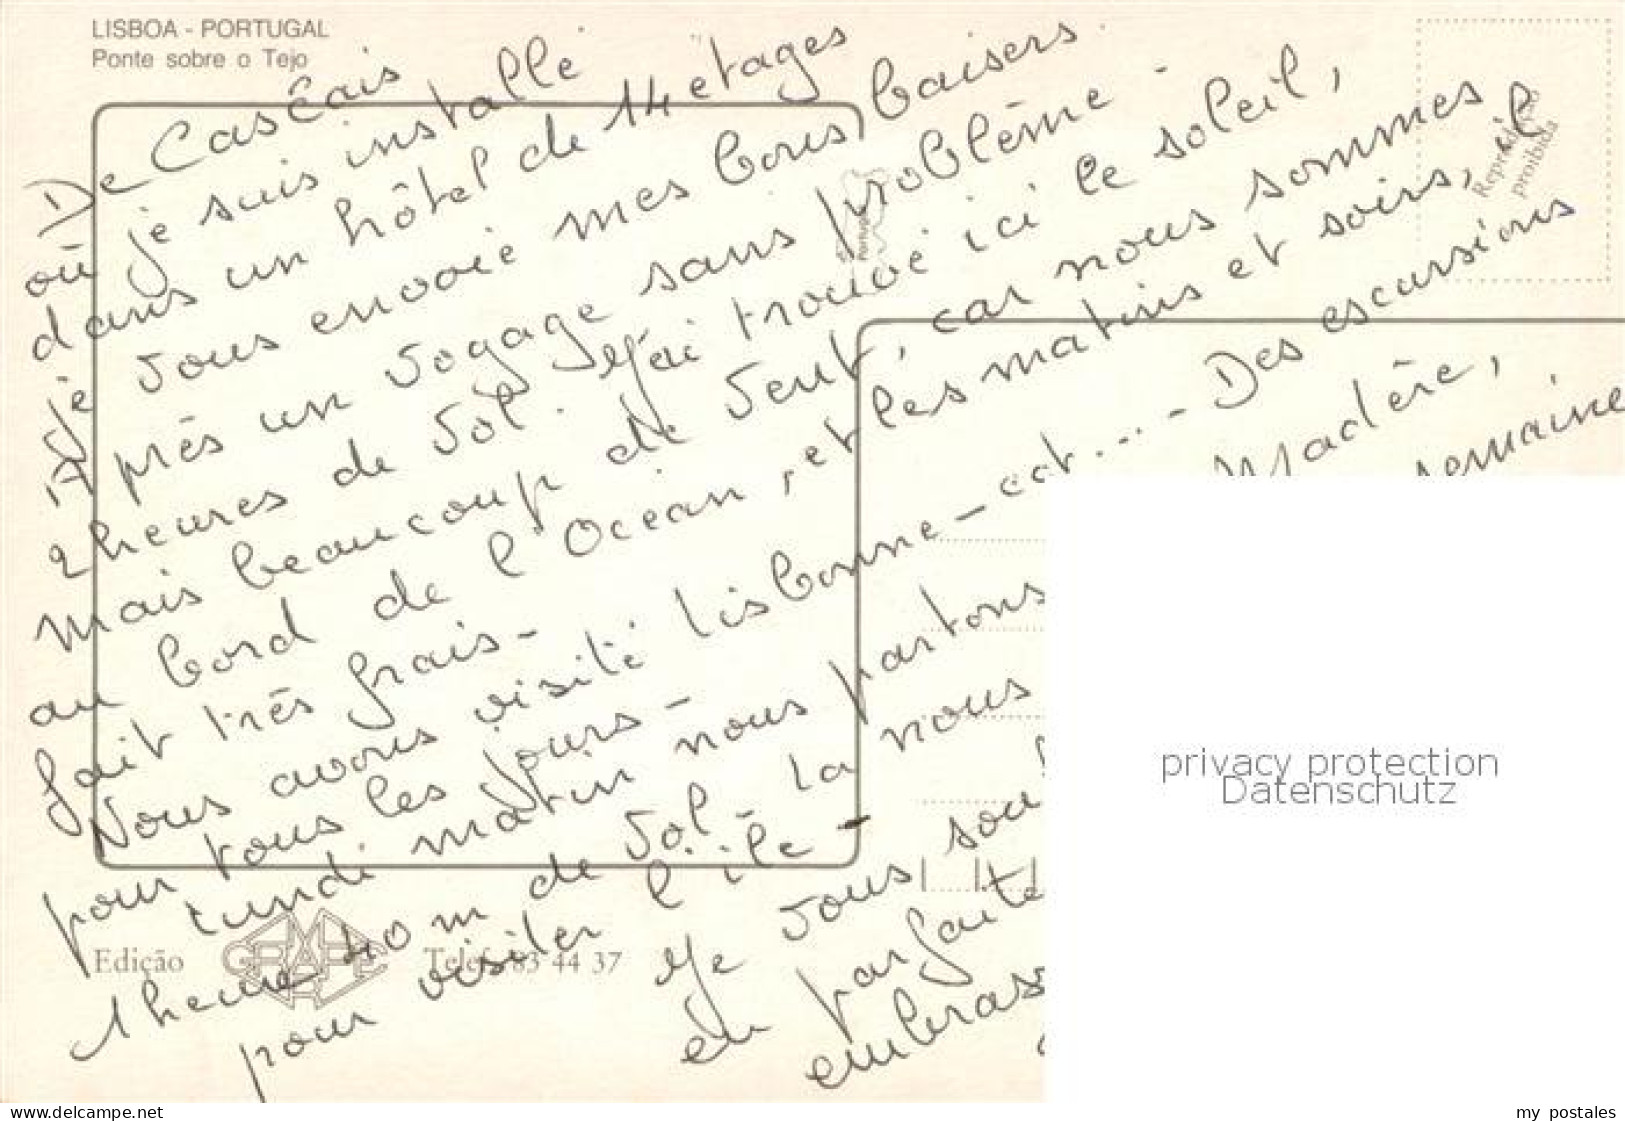 LISBOA - PORTUGAL
Ponte sobre o Tejo
De Cascais
où je suis installé
dans un hôtel de 14 etages
je vous envoie mes bons baisers.
Après un voyage sans problème -
2 heures de vol. J'ai trouvé ici le soleil,
mais beaucoup de vent, car nous sommes
au bord de l'Océan, et les matins et soirs, il
fait très frais -
Nous avons visité Lisbonne - ect... - Des escursions
pour tous les jours -
Lundi matin nous partons Madère,
1 heure 40 m de vol - La nous semaine
pour visiter l'île -
Je vous sou
en parfaite
embras
Reprodução proibida
Portugal
Edição
GRAFIPER
Telef. 83 44 37
privacy protection
Datenschutz
www.delcampe.net
my postales